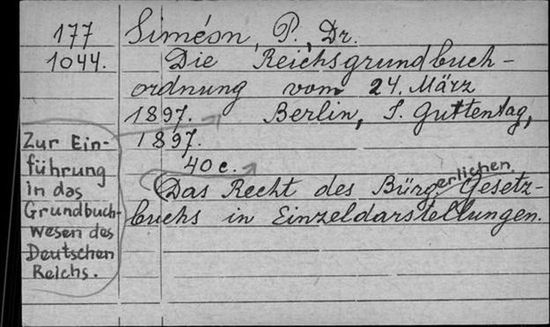 177
1044.
Siméon, P., Dr.
Die Reichsgrundbuch-
ordnung vom 24. März
1897. Berlin, J. Guttentag,
1897.
40 c.
(Das Recht des Bürgerlichen Gesetz-
buchs in Einzeldarstellungen.
Zur Ein-
führung
in das
Grundbuch-
wesen des
Deutschen
Reichs.